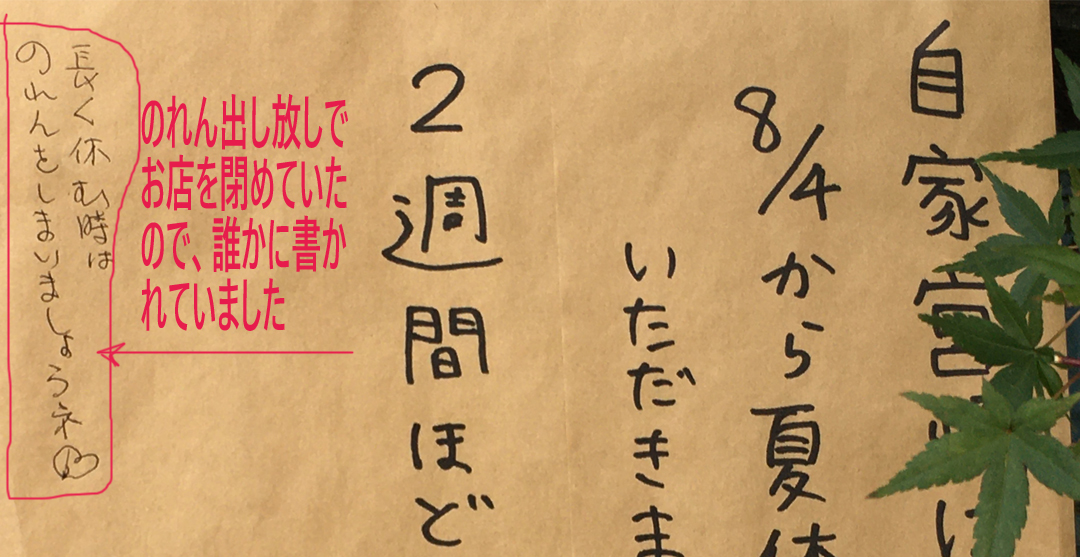 自家営
8/4から夏休
いただきま
2週間ほど
のれん出し放しで
お店を閉めていた
ので、誰かに書か
れていました
長く休む時は
のれんをしまいましょうネ